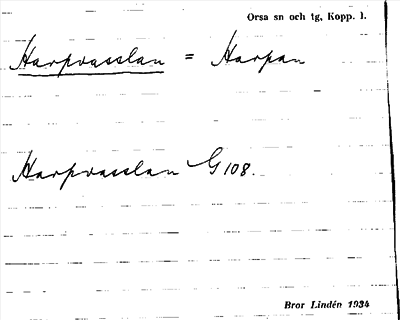 Orsa sn och tg, Kopp. l.
Harpvasslan = Harpan
Harpvasslan G 108.
Bror Lindén 1934